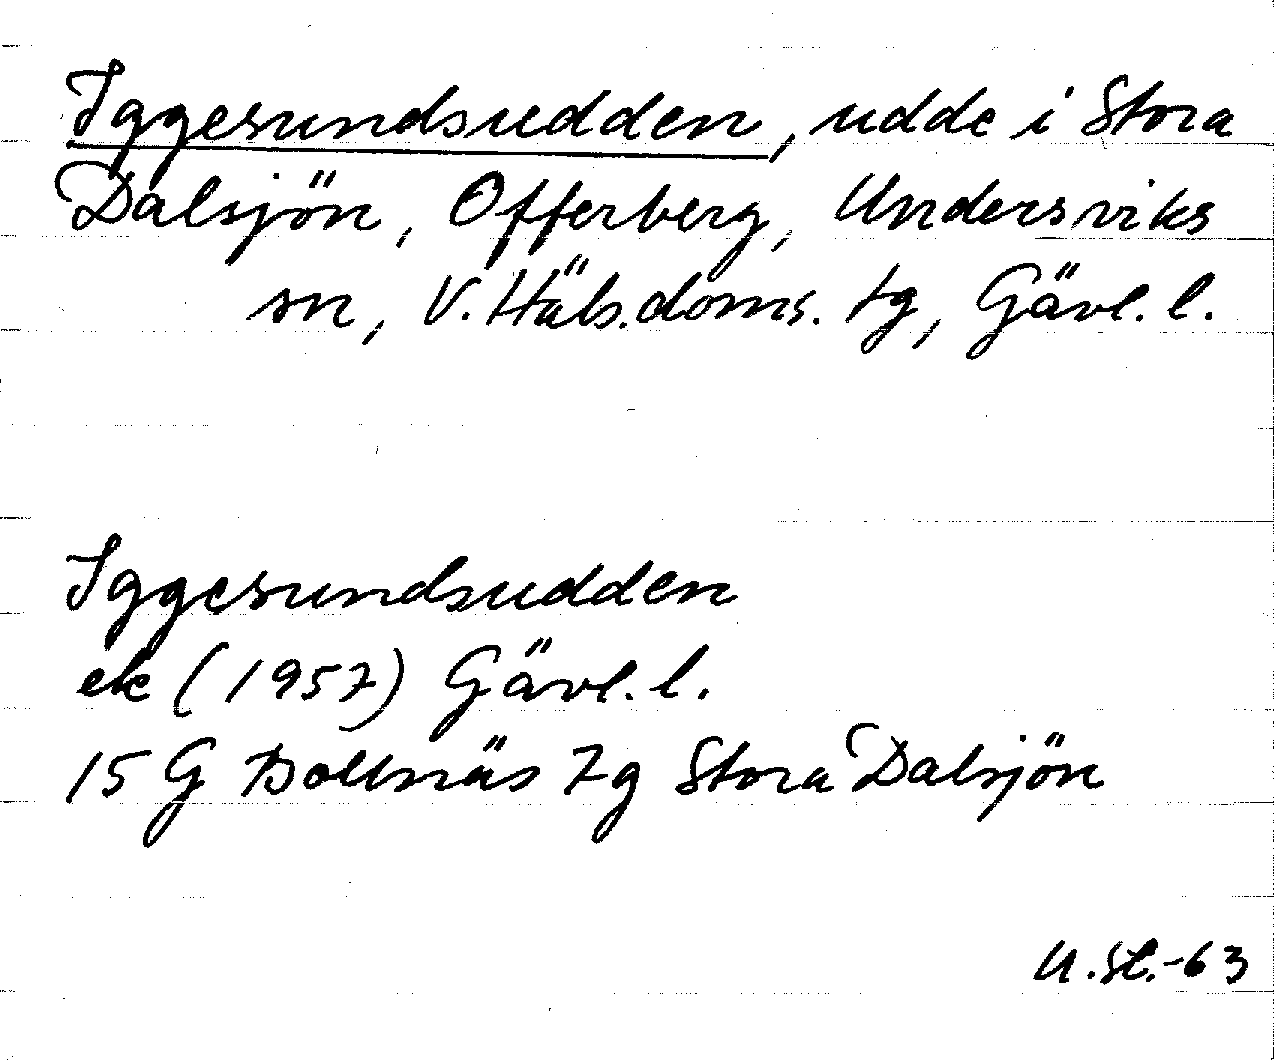 Iggesundsudden, udde i Stora
Dalsjön, Offerberg, Undersviks
sn, V. Häls. doms. tg, Gävl. l.
Iggesundsudden
ek (1957) Gävl. l.
15 G Bollnäs 7g Stora Dalsjön
U.St.-63